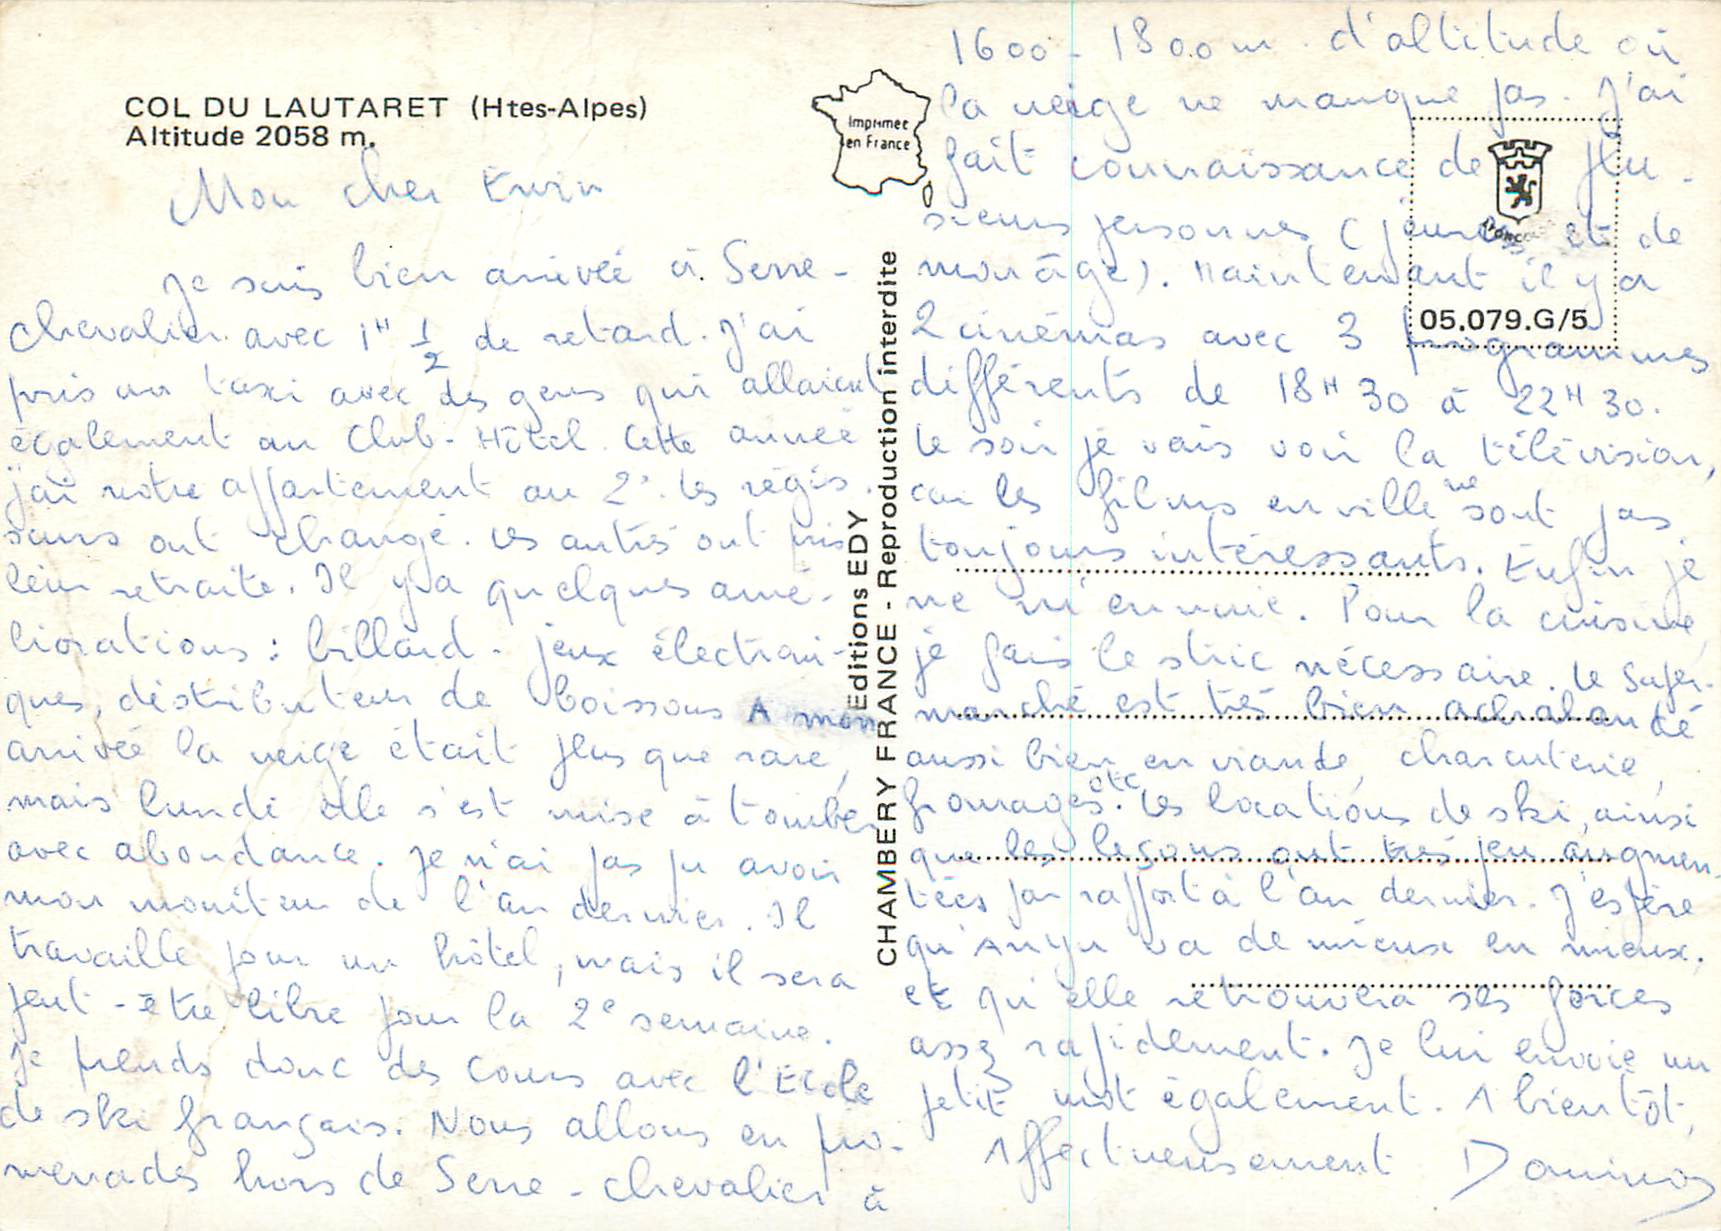 COL DU LAUTARET (Htes-Alpes)
Altitude 2058 m.
Mon cher Erwin
Je suis bien arrivée à Serre-
chevalier avec 1H 1/2 de retard. J'ai
pris un taxi avec des gens qui allaient
également au Club-Hôtel. Cette année
j'ai notre appartement au 2e. Les régis
seurs ont changé. Les autres ont pris
leur retraite. Il y a quelques amé-
liorations : billard - jeux électroni-
ques, distributeur de boissons A mon
arrivée la neige était plus que rare,
mais lundi elle s'est mise à tomber
avec abondance. Je n'ai pas pu avoir
mon moniteur de l'an dernier. Il
travaille pour un hôtel, mais il sera
peut-être libre pour la 2e semaine.
Je prends donc des cours avec l'Ecole
de ski français. Nous allons en pro-
menades hors de Serre-chevalier à
Imprimée
en France
Editions EDY
CHAMBERY FRANCE - Reproduction interdite
1600 - 1800 m. d'altitude où
la neige ne manque pas. J'ai
fait connaissance de plu-
sieurs personnes (jeunes et de
mon âge). Maintenant il y a
05.079.G/5
2 cinémas avec 3 programmes
différents de 18H30 à 22H30.
Le soir je vais voir la télévision,
car les films en ville ne sont pas
toujours intéressants. Enfin je
ne m'ennuie. Pour la cuisine
je fais le stric nécessaire. Le Super-
marché est très bien achalandé
aussi bien en viande, charcuterie,
fromages etc. Les locations de ski, ainsi
que les leçons ont très peu augmen-
tées par rapport à l'an dernier. J'espère
qu'Anju va de mieux en mieux.
et qu'elle retrouvera ses forces
assez rapidement. Je lui envoie un
petit mot également. A bientôt,
Affectueusement